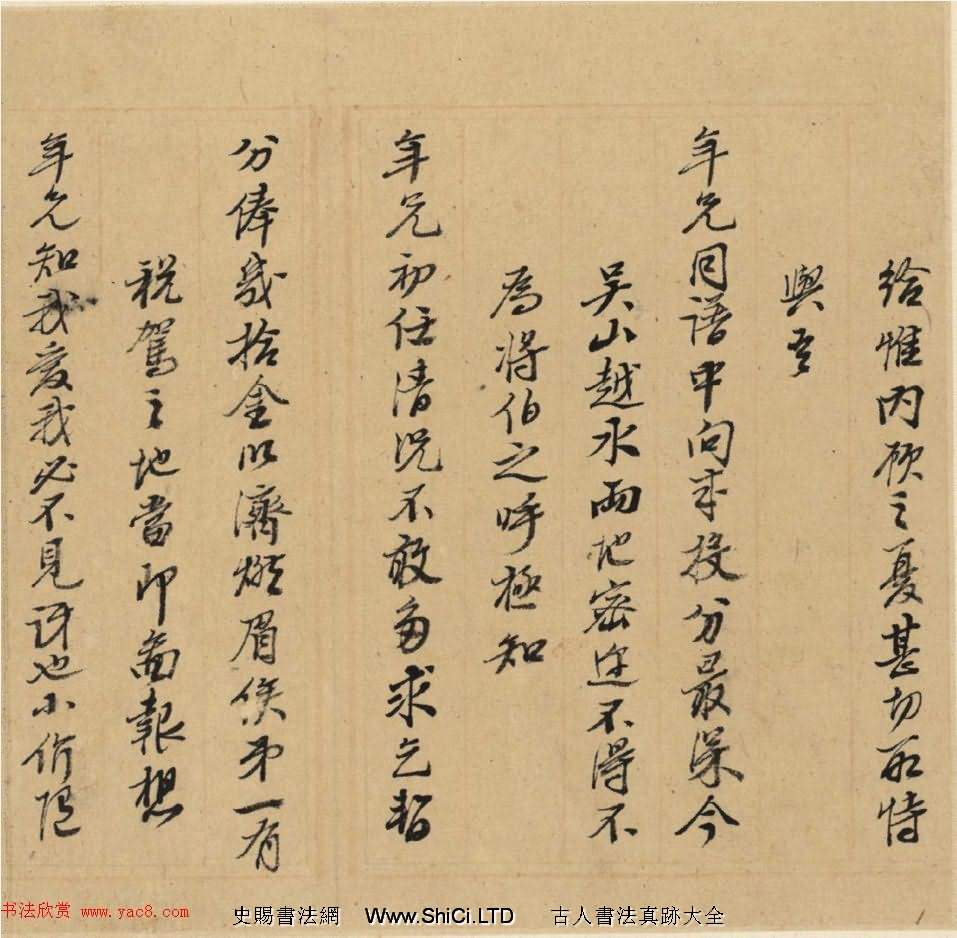 給惟內顧之憂甚切所恃
與吾
年兄同譜中向來投分最深今
吳山越水兩地密邇不得不
為將伯之呼極知
年兄初任清況不敢多求乞暫
分俸幾拾金以濟燃眉俟弟一有
稅駕之地當即圖報想
年兄知我愛我必不見訝也小价
书法欣赏 www.yac8.com
史賜書法網 Www.ShiCi.LTD 古人書法真跡大全